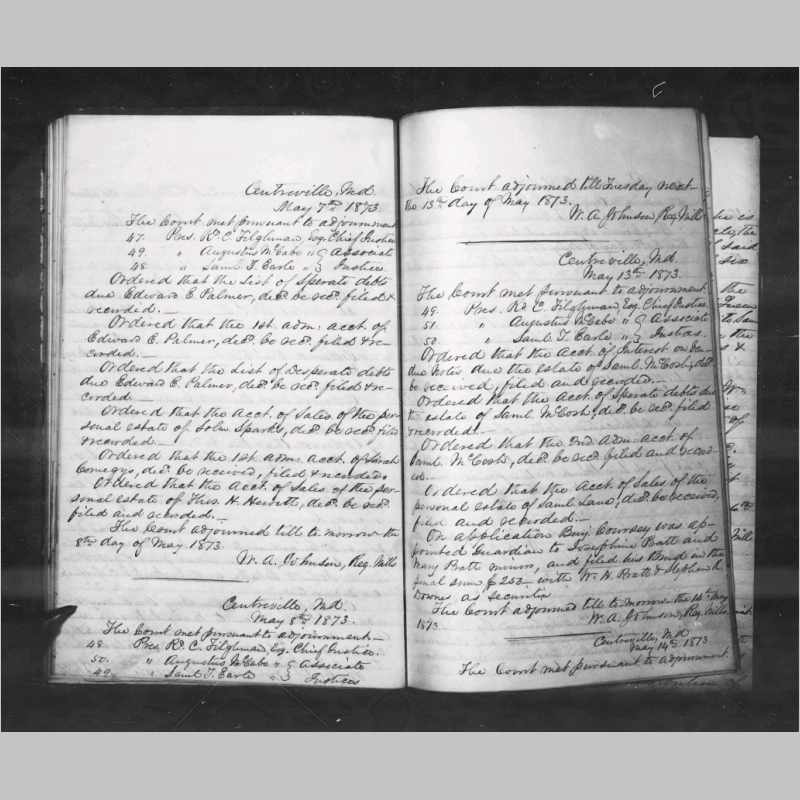 Centreville, Md.
May 7th 1873.
The Court met pursuant to adjournment
47. Pres. Rd. C. Tilghman, Esq. Chief Justice
49. " Augustus McCabe " & Associate
48. " Saml T. Earle " " Justices
Ordered that the List of Sperate debts
due Edward E. Palmer, decd. be recd. filed &
recorded.—
Ordered that the 1st. adm: acct. of
Edward E. Palmer, decd. be recd. filed & re-
corded.—
Ordered that the List of Desperate debts
due Edward E. Palmer, decd. be recd. filed & re-
corded.—
Ordered that the Acct. of Sales of the per-
sonal estate of John Sparks, decd. be recd. filed
& recorded.—
Ordered that the 1st. adm: acct. of Sarah
Comegys, decd. be received, filed & recorded.
Ordered that the Acct. of Sales of the per-
sonal estate of Thos. H. Hewitt, decd. be recd.
filed and recorded.—
The Court adjourned till to morrow the
8th day of May 1873.
W. A. Johnson, Reg. Wills
Centreville, Md.
May 8th 1873.
The Court met pursuant to adjournment.—
48. Pres. Rd. C. Tilghman, Esq. Chief Justice.
50. " Augustus McCabe " & Associate
49. " Saml. T. Earle " " Justices
The Court adjourned till Tuesday next
the 13th day of May 1873.
W. A. Johnson, Reg. Wills
Centreville, Md.
May 13th 1873.
The Court met pursuant to adjournment.
49. Pres. Rd. C. Tilghman, Esq. Chief Justice
51. " Augustus McCabe " & Associate
50. " Saml. T. Earle " " Justices.
Ordered that the Acct. of Interest on
due Notes due the estate of Saml. McCosh, decd.
be received, filed and recorded.—
Ordered that the Acct. of Sperate debts due
the estate of Saml. McCosh, decd. be recd. filed
& recorded.—
Ordered that the 2nd. Adm: acct. of
Saml. McCosh, decd. be recd. filed and record-
ed.—
Ordered that the Acct. of Sales of the
personal estate of Saml. Lane, decd. be received,
filed and recorded.—
On application Benj. Coursey was ap-
pointed Guardian to Josephine Pratt and
Mary Pratt minors, and filed his Bond in the
penal sum $250— with Wm. H. Pratt & Stephen
Downes as securities
The Court adjourned till to-morrow the 14th May
1873.
W. A. Johnson, Reg. Wills
Centreville, Md.
May 14th 1873.
The Court met pursuant to adjournment.